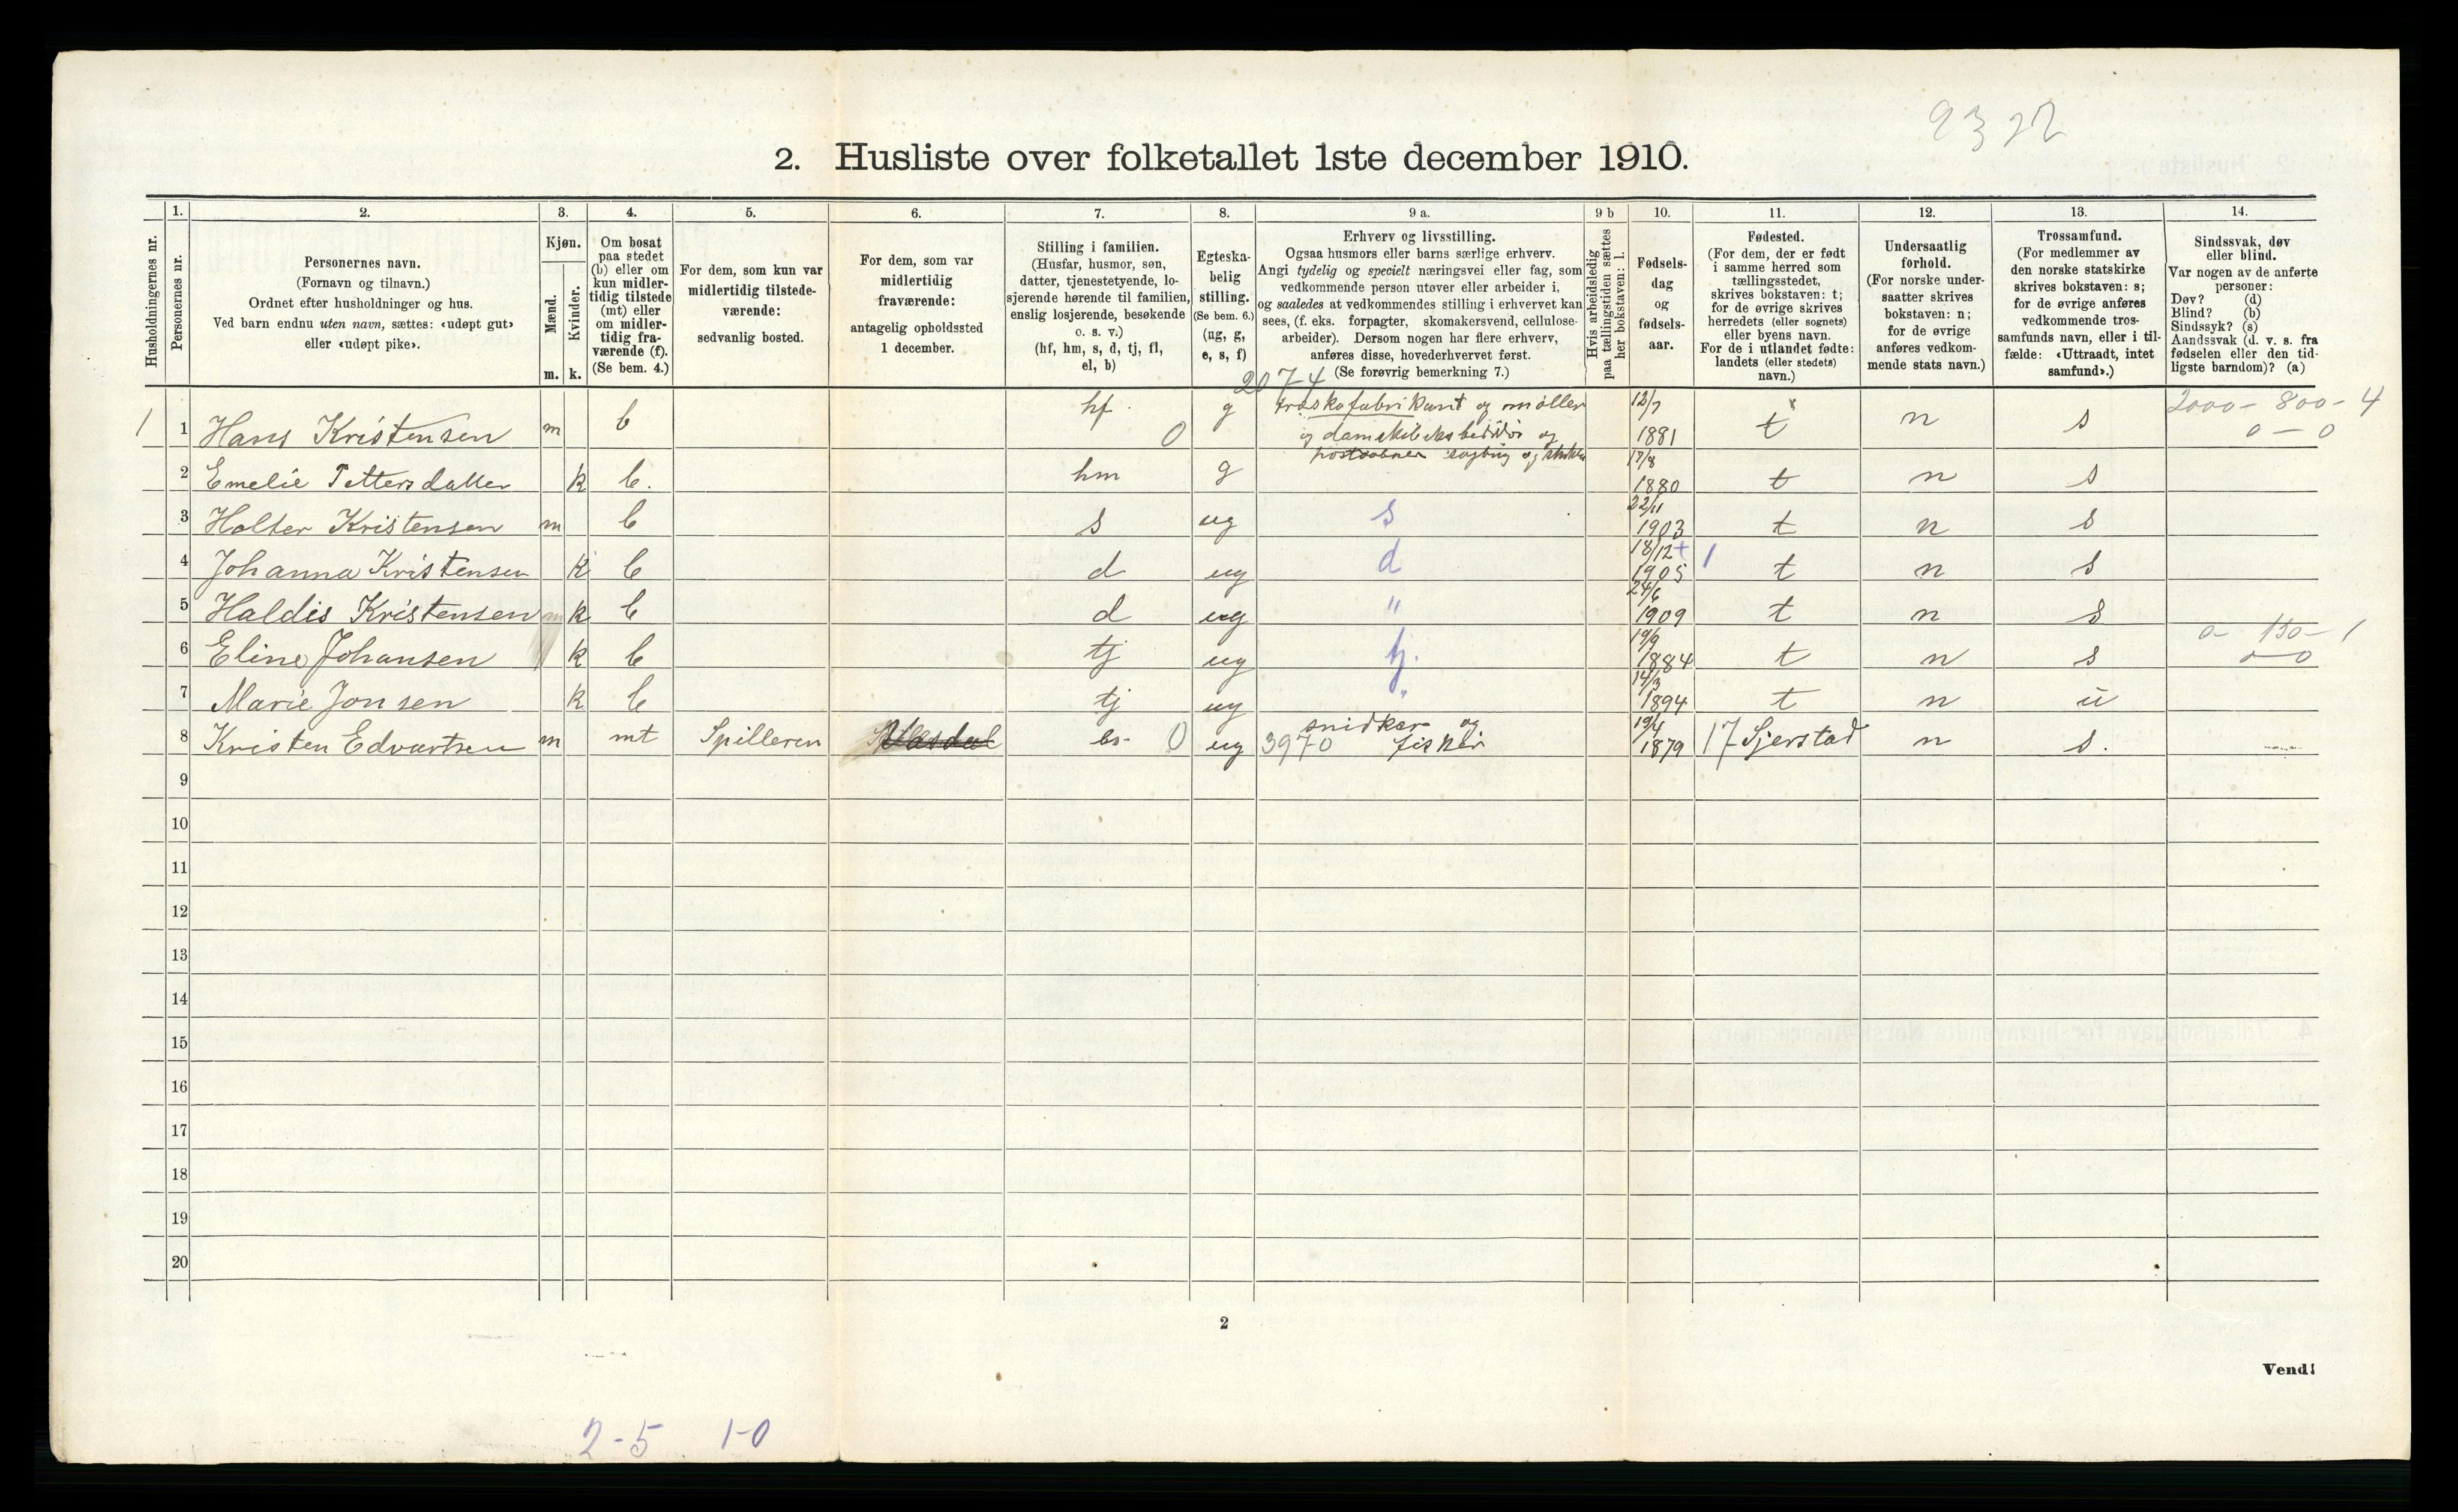 2. Husliste over folketallet 1ste december 1910.
1. 2. 3. 4. 5. 6. 7. 8. 9 a. 9 b 10. 11. 12. 13. 14.
Husholdningernes nr.
Personernes nr.
Personernes navn.
(Fornavn og tilnavn.)
Ordnet efter husholdninger og hus.
Ved barn endnu uten navn, sættes: «udøpt gut»
eller «udøpt pike».
Kjøn.
Mænd.
Kvinder.
m. k.
Om bosat
paa stedet
(b) eller om
kun midler-
tidig tilstede
(mt) eller
om midler-
tidig fra-
værende (f).
(Se bem. 4.)
For dem, som kun var
midlertidig tilstede-
værende:
sedvanlig bosted.
For dem, som var
midlertidig
fraværende:
antagelig opholdssted
1 december.
Stilling i familien.
(Husfar, husmor, søn,
datter, tjenestetyende, lo-
sjerende hørende til familien,
enslig losjerende, besøkende
o. s. v.)
(hf, hm, s, d, tj, fl,
el, b)
Egteska-
belig
stilling.
(Se bem. 6.)
(ug, g,
e, s, f)
Erhverv og livsstilling.
Ogsaa husmors eller barns særlige erhverv.
Angi tydelig og specielt næringsvei eller fag, som
vedkommende person utøver eller arbeider i,
og saaledes at vedkommendes stilling i erhvervet kan
sees, (f. eks. forpagter, skomakersvend, cellulose-
arbeider). Dersom nogen har flere erhverv,
anføres disse, hovederhvervet først.
(Se forøvrig bemerkning 7.)
Hvis arbeidsledig
paa tællingstiden sættes
her bokstaven: l.
Fødsels-
dag
og
fødsels-
aar.
Fødested.
(For dem, der er født
i samme herred som
tællingsstedet,
skrives bokstaven: t;
for de øvrige skrives
herredets (eller sognets)
eller byens navn.
For de i utlandet fødte:
landets (eller stedets)
navn.)
Undersaatlig
forhold.
(For norske under-
saatter skrives
bokstaven: n;
for de øvrige
anføres vedkom-
mende stats navn.)
Trossamfund.
(For medlemmer av
den norske statskirke
skrives bokstaven: s;
for de øvrige anføres
vedkommende tros-
samfunds navn, eller i til-
fælde: «Uttraadt, intet
samfund».)
Sindssvak, døv
eller blind.
Var nogen av de anførte
personer:
Døv? (d)
Blind? (b)
Sindssyk? (s)
Aandssvak (d. v. s. fra
fødselen eller den tid-
ligste barndom)? (a)
2074
2000 - 800 - 4
0 - 0
1 1 Hans Kristensen m b hf 0 g træskofabrikant og møller 12/7 1881 t n s
og og
2 Emelie Pettersdatter k b. hm g 17/8 1880 t n s
3 Holter Kristensen m b s ug s 22/11 1903 t n s
4 Johanna Kristensen k b d ug d 18/12 + 1905 1 t n s
5 Haldis Kristensen k b d ug " 24/6 1909 t n s
6 Eline Johansen k b tj ug tj. 19/9 1884 t n s 0 - 150 - 1
0 - 0
7 Marie Jonsen k b tj ug " 14/3 1894 t n u
8 Kristen Edvartsen m mt Spilleren 0 ug 3970 snidker og fisker 19/4 1879 17 Sjerstad n s.
9
10
11
12
13
14
15
16
17
18
19
20
2
Vend!
2-5 1-0